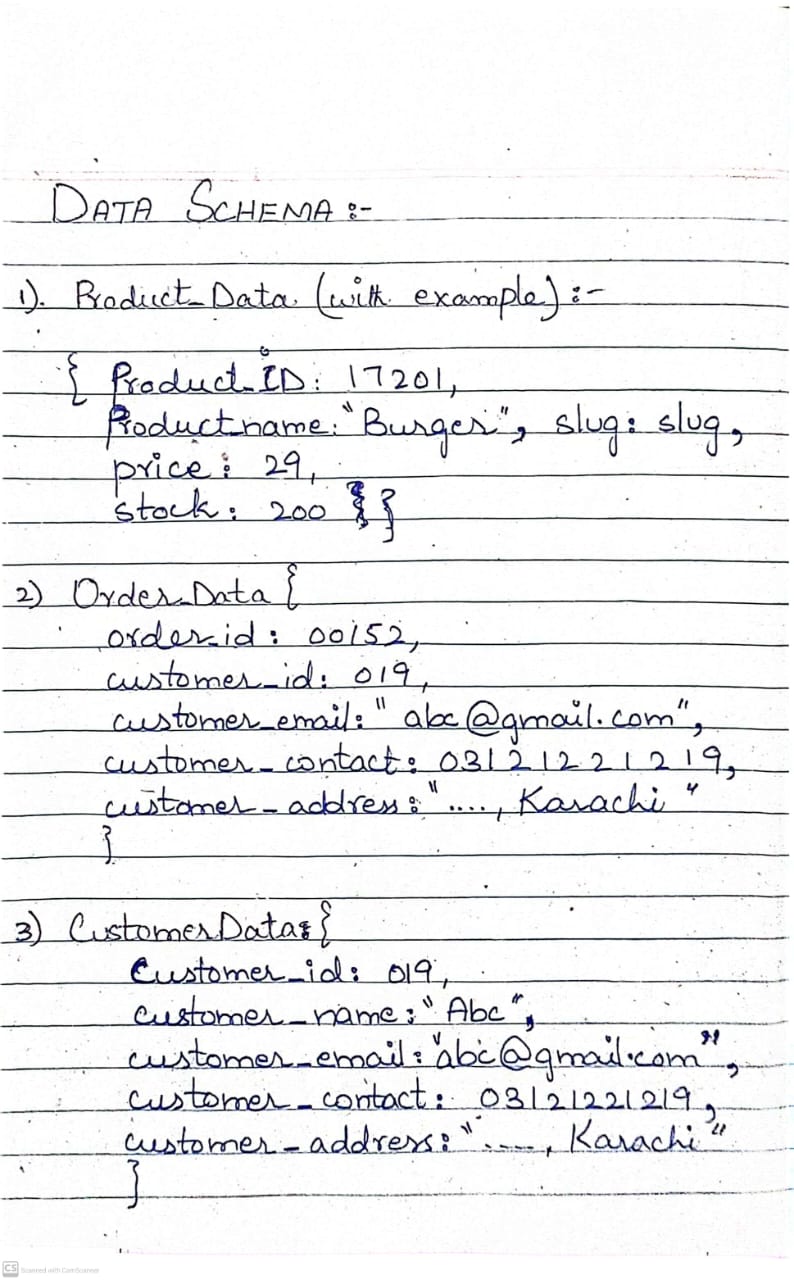 DATA SCHEMA :-
1). Product_Data (with example) :-
{ Product_ID: 17201,
Product_name: "Burger", slug: slug,
price: 29,
stock: 200 }}
2) Order_Data {
order_id: 00152,
customer_id: 019,
customer_email: "abc@gmail.com",
customer_contact: 03121221219,
customer_address: "...., Karachi"
}
3) Customer_Data: {
Customer_id: 019,
customer_name: "Abc",
customer_email: "abc@gmail.com",
customer_contact: 03121221219,
customer_address: "....., Karachi"
}
CS Scanned with CamScanner